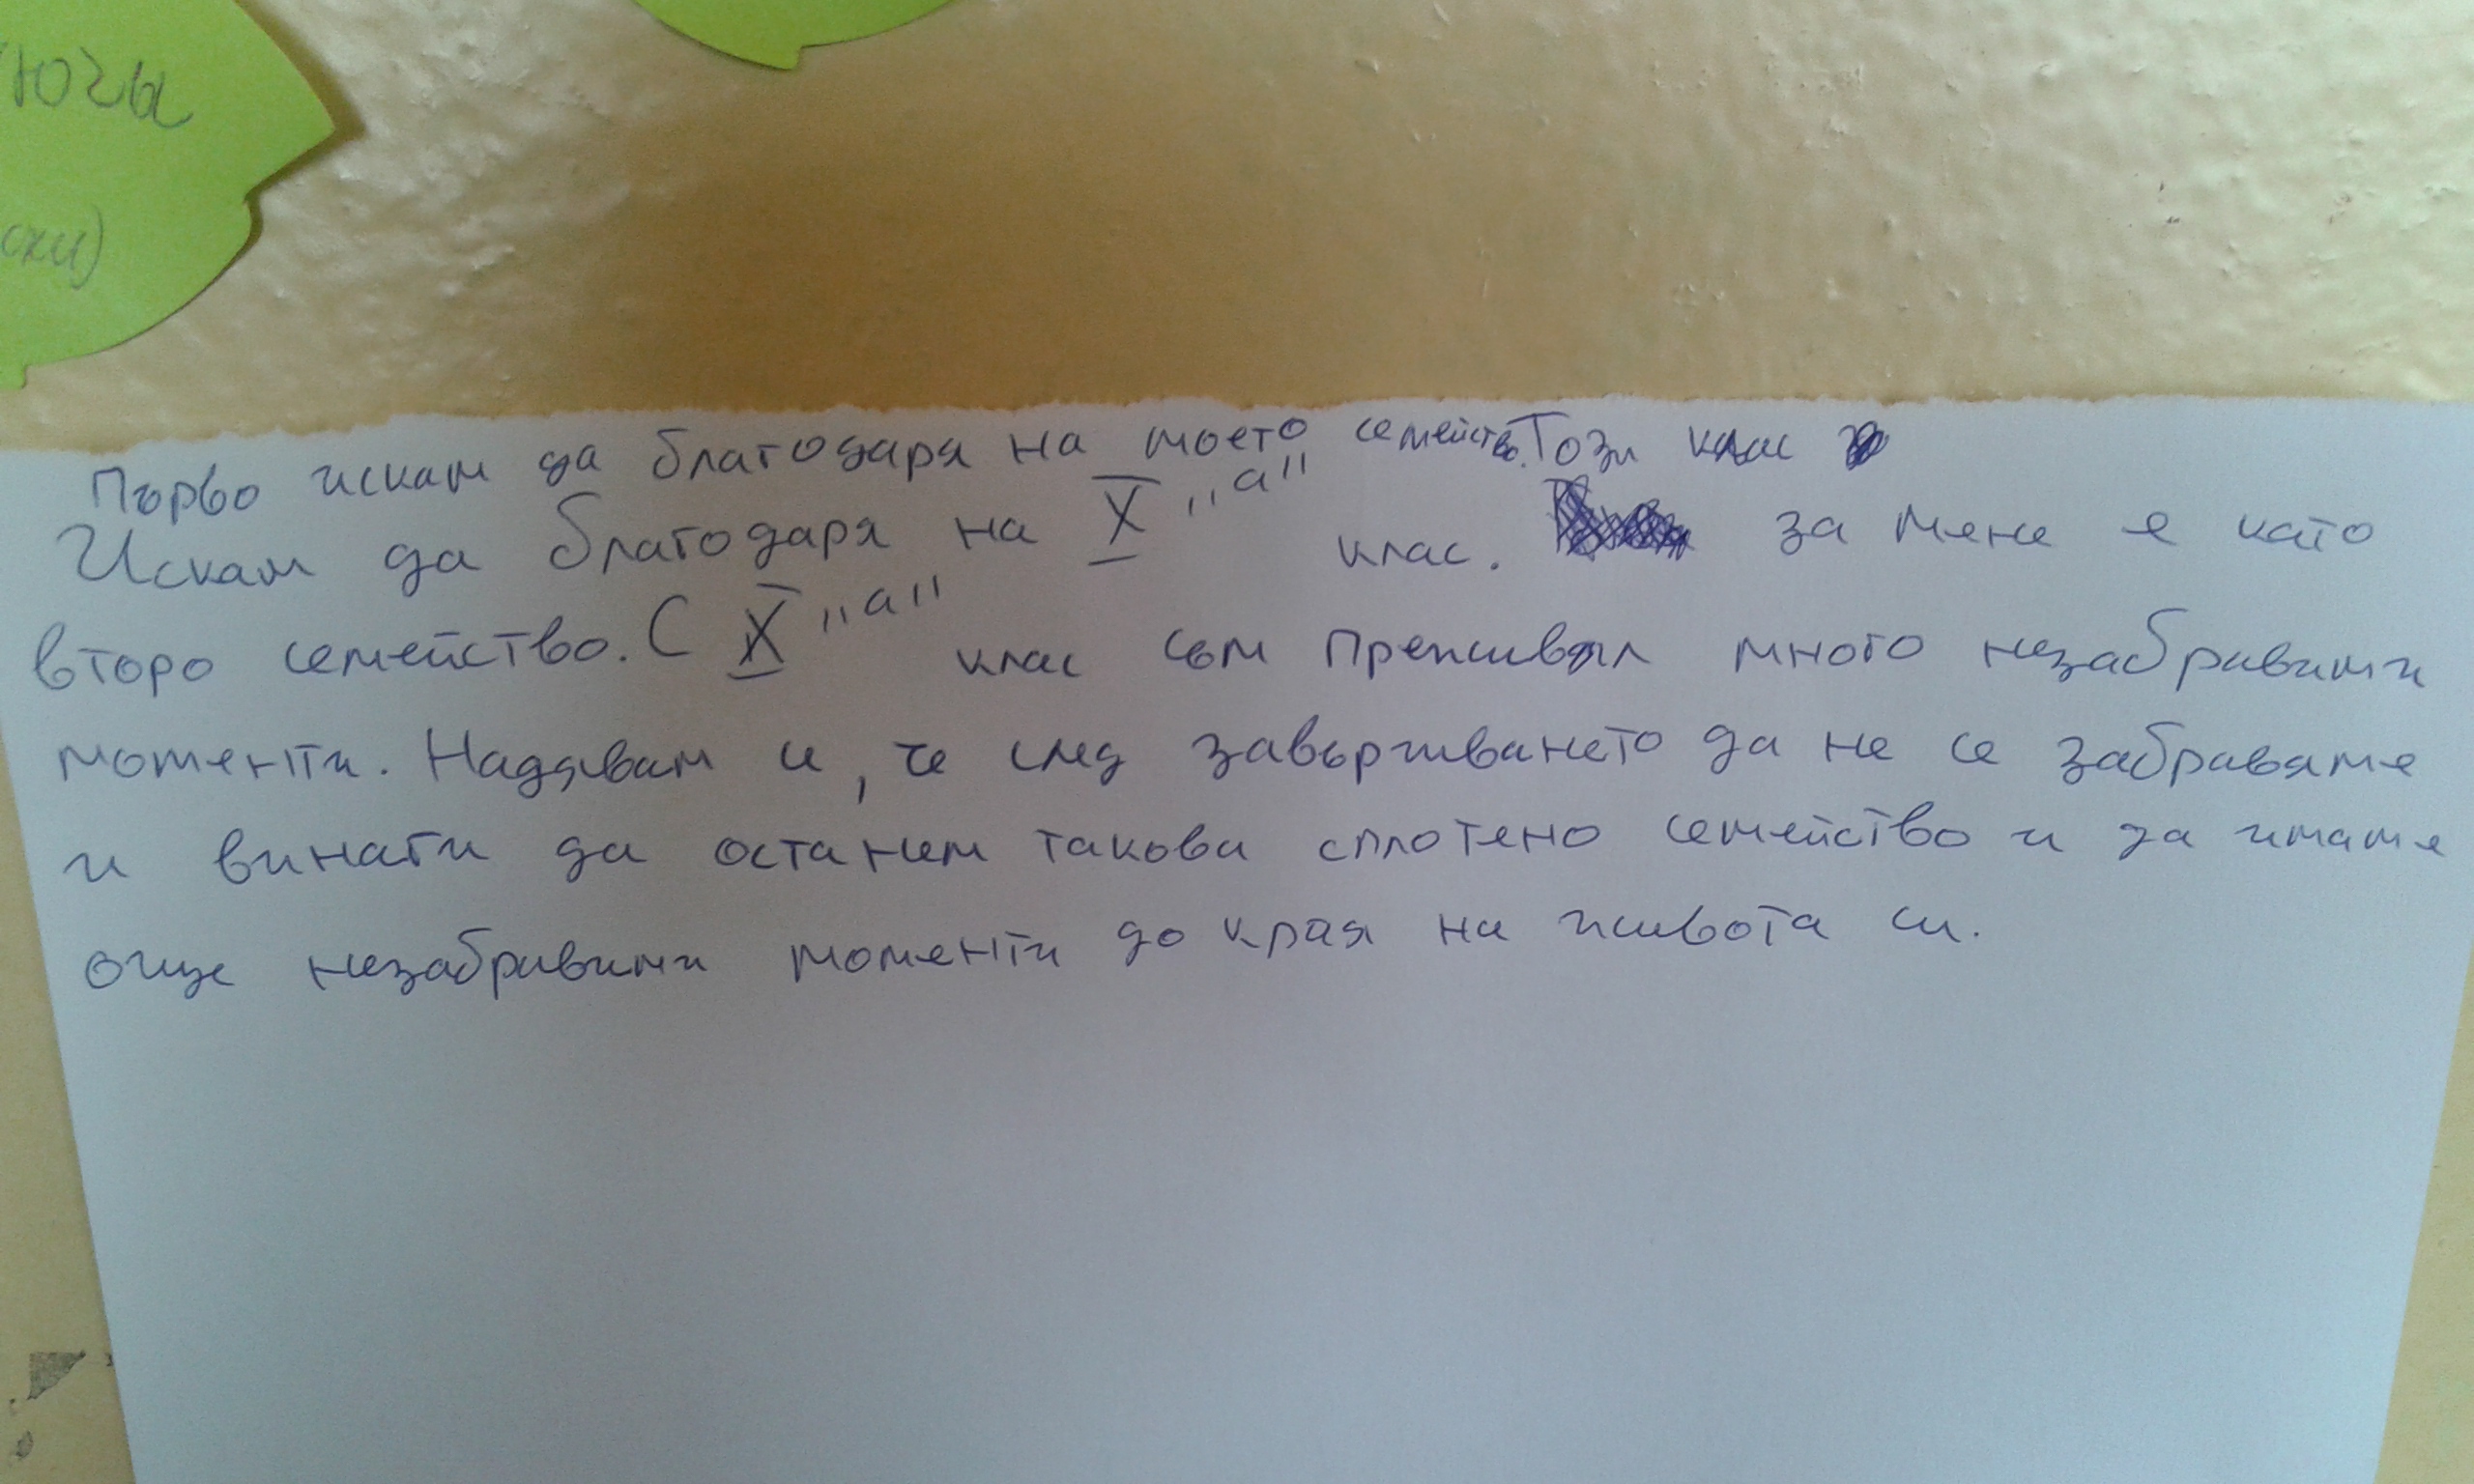 ючы
ски)
Първо искам да благодаря на моето семейство. Този клас
Искам да благодаря на X "а" клас. за мене е като
второ семейство. С X "а" клас съм преживял много незабравими
моменти. Надявам се, че след завършването да не се забравяме
и винаги да останем такова сплотено семейство и да имаме
още незабравими моменти до края на живота си.